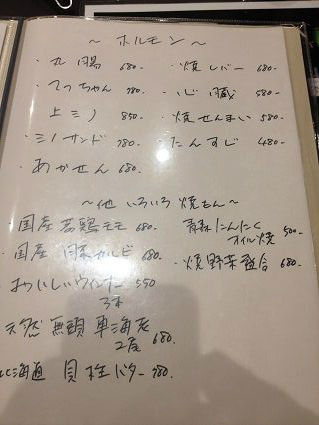 ～ ホルモン ～
・丸腸 680-
・焼レバー 680-
・てっちゃん 780-
・心臓 580-
上ミノ 850-
・焼せんまい 580-
・ミノサンド 780-
・たんすじ 480-
・あかせん 680-
～他 いろいろ焼もん～
国産 若鶏モモ 680-
青森にんにく
オイル焼 500-
・国産 豚カルビ 680-
・焼野菜盛合 680-
・おいしいウィンナー 550
3本
天然 無頭 車海老
2尾 680-
北海道 貝柱バター 780-